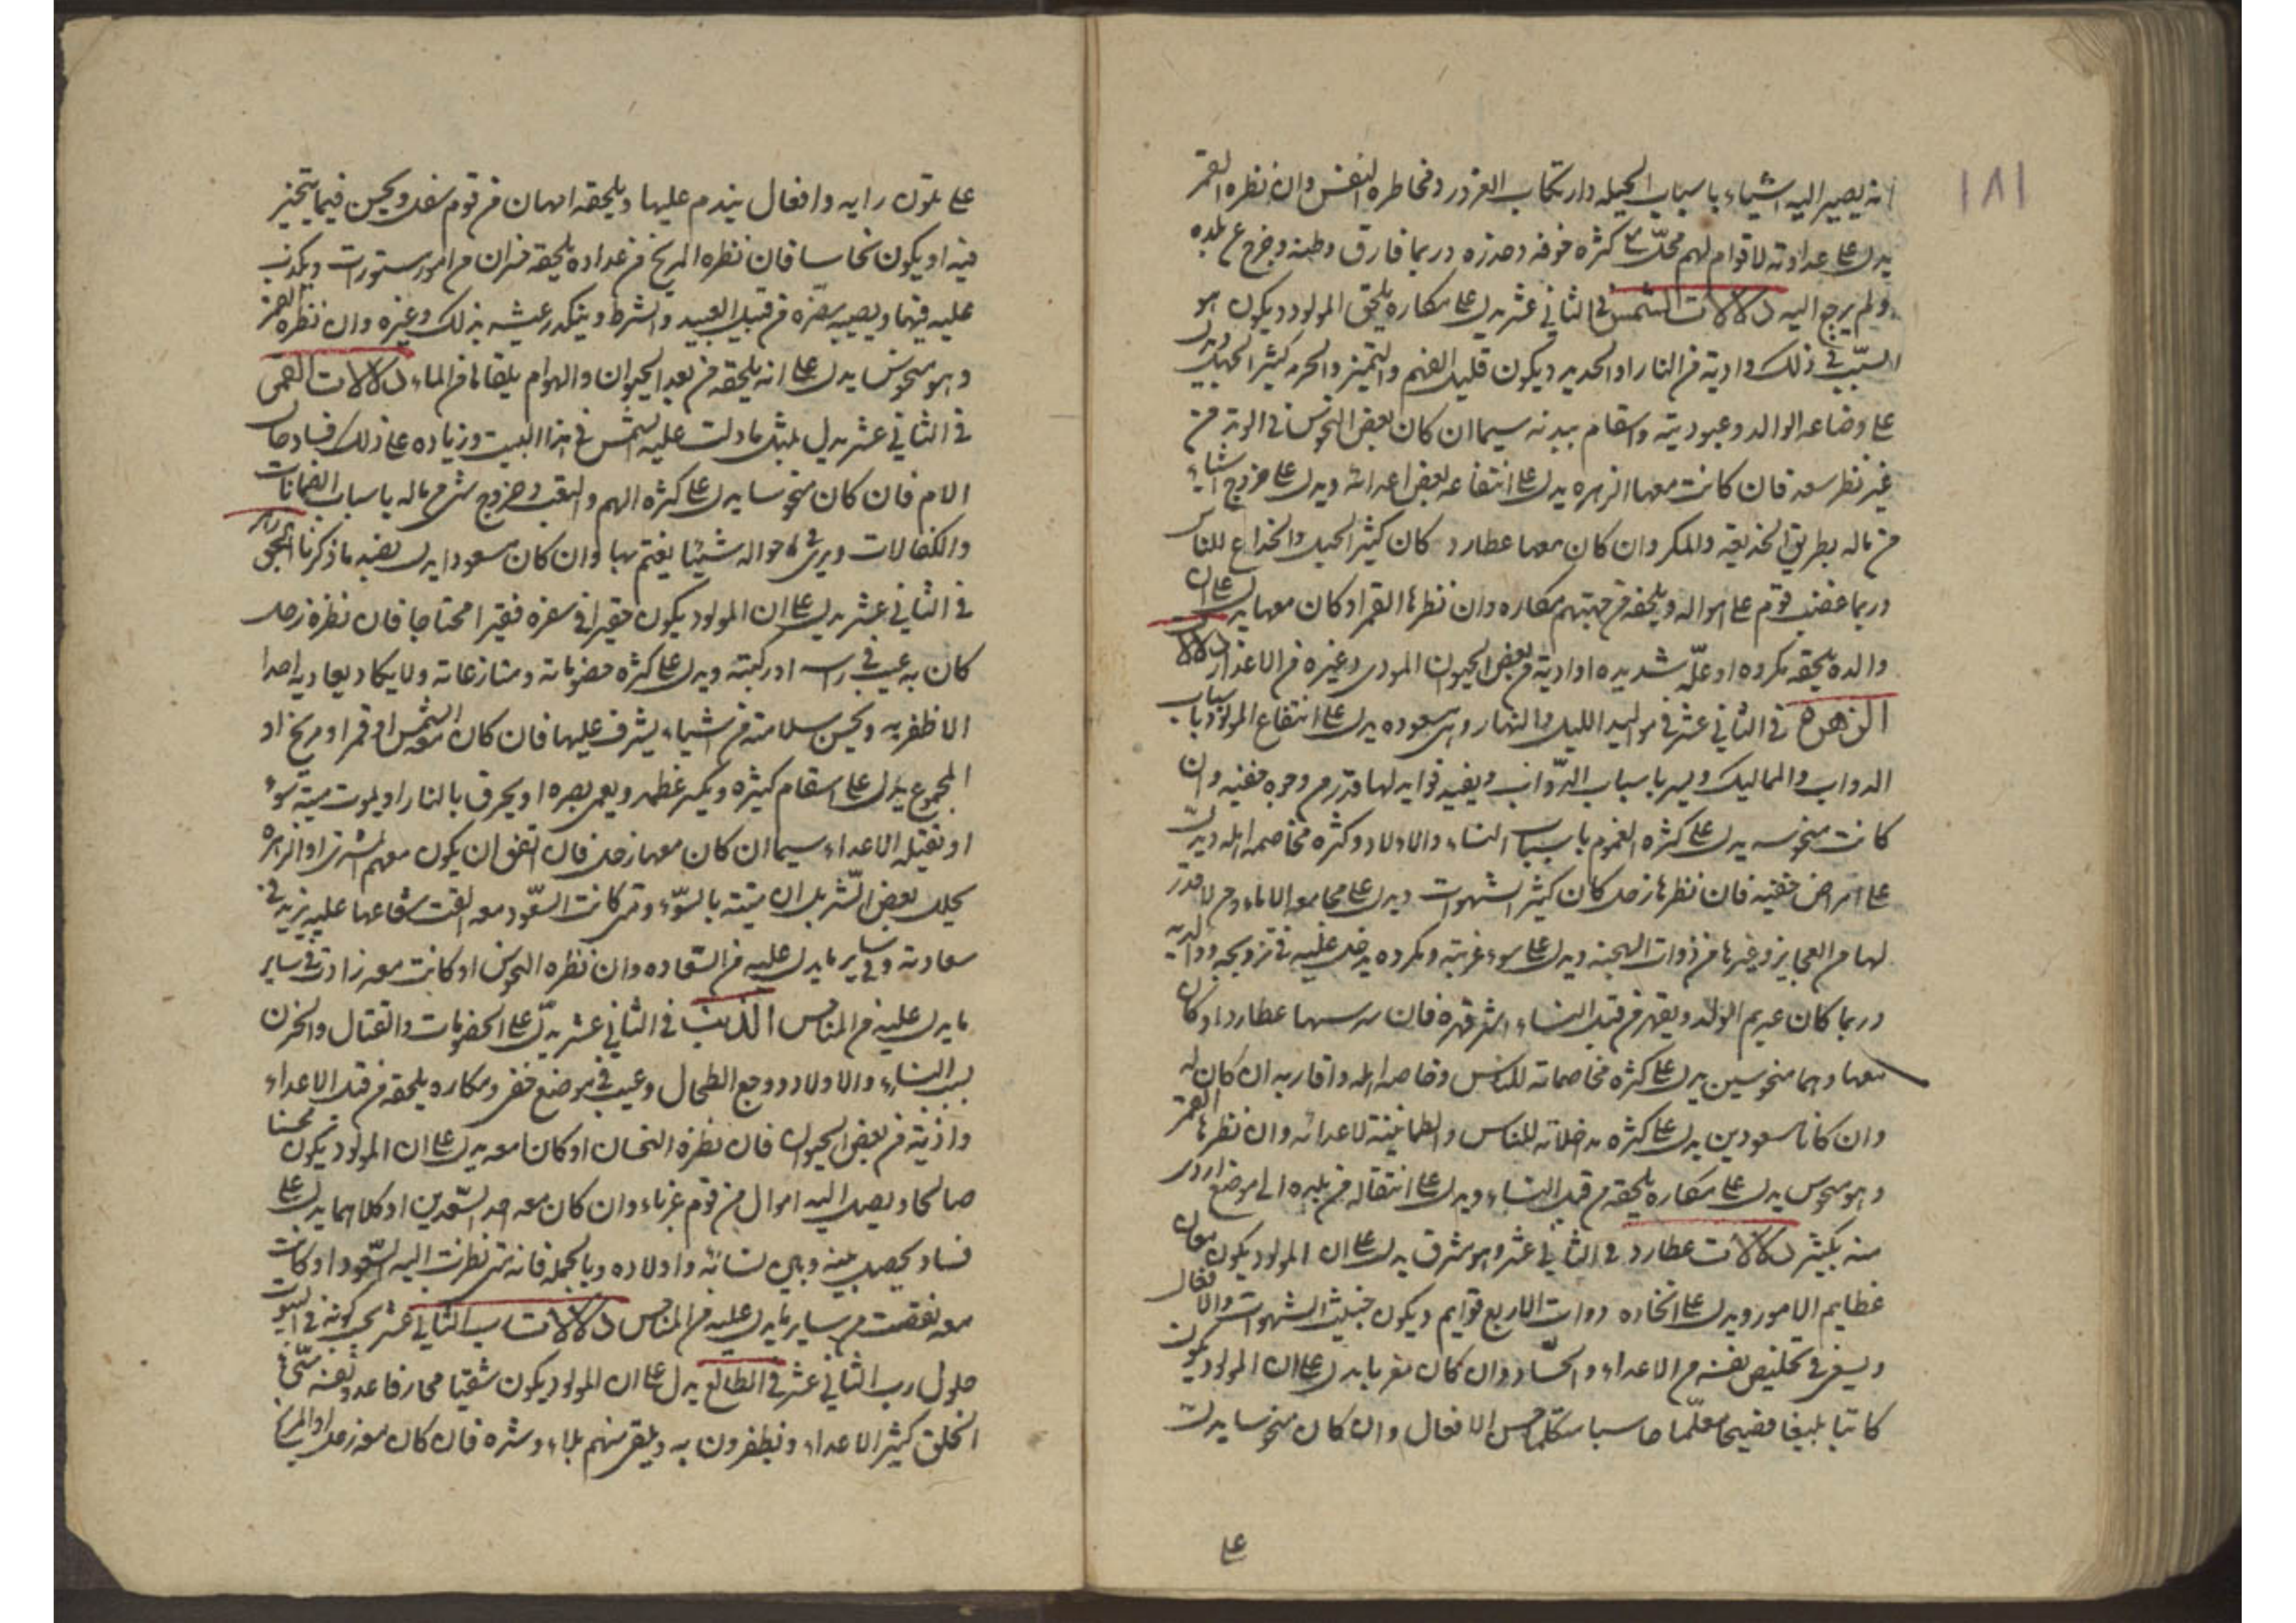 ١٨١
انه يصير اليه اشياء باسباب الحيله وارتكاب الغرور ومخاطره النفس وان نظره القمر
يدل على عداوته لاقوام لهم محل مع كثره خوفه وحذره وربما فارق وطنه وخرج عن بلده
ولم يرجع اليه دلالات الشمس في الثاني عشر يدل على مكاره يلحق المولود ويكون هو
السبب في ذلك واذيته من النار او الحديد ويكون قليل الفهم والتميز والحرمه كثير الجهل ويدل
على وضاعه الوالد وعبوديته واسقام ببدنه سيما ان كان بعض النحوس في الوتد من
غير نظر سعد فان كانت معها الزهره يدل على انتفاعه ببعض اعدائه ويدل على خروج اشياء
من ماله بطريق الخديعة والمكر وان كان معها عطارد كان كثير الحيل والخداع للناس
وربما غضب قوم على امواله ويلحقه من جهتهم مكاره وان نظرها القمر او كان معها يدل على ان
والده يلحقه مكروه او علّه شديده او اذية من بعض الحيوان الموذى وغيره من الاعداء دلالات
الزهره في الثاني عشر في مواليد الليل والنهار وهي مسعوده يدل على انتفاع المولود باسباب
الدواب والمماليك ويسر باسباب الدواب ويفيد فوايد لها قدر من وجوه خفيه وان
كانت منحوسه يدل على كثره الغموم باسباب النساء والاولاد وكثره مخاصمه اهله ويدل
على امراض خفيه فان نظرها زحل كان كثير الشهوات ويدل على مجامعه الاماء ومن لا قدر
لها من العجايز وغيرها من ذوات الهجنه ويدل على سوء غربته ومكروه يدخل عليه في تزويجه ووالديه
وربما كان عديم الولد ويقهر من قبل النساء اشر قهره فان مد سهما عطارد او كان
معها وهما منحوسين يدل على كثره مخاصماته للناس وخاصه اهله واقاربه ان كان له
وان كانا مسعودين يدل على كثره مداخلاته للناس والطمانينة لاعدائه وان نظرها القمر
وهو منحوس يدل على مكاره يلحقه من قبل النساء ويدل على انتقاله من بلده الى موضع اردى
منه بكثير دلالات عطارد في الثاني عشر وهو مشرق يدل على ان المولود يكون معان
عظايم الامور ويدل على اتخاذه ذوات الاربع قوايم ويكون خبيث الشهوات والافعال
ويسعى في تخليص نفسه من الاعداء والحساد وان كان مغربا يدل على ان المولود يكون
كاتبا بليغا فصيحا معلّما حاسبا متكلما حسن الافعال وان كان منحوسا يدل
على
على تلون رايه وافعال يندم عليها ويلحقه امهان من قوم سفل ويحسن فيما يتخير
فيه او يكون نخاسا فان نظره المريخ من عداوة يلحقه خسران من امور مستورات ويكذب
عليه فيها ويصيبه مضره من قبل العبيد والشرط ويتكدر عيشه بذلك وغيره وان نظره القمر
وهو منحوس يدل على انه يلحقه من بعد الحيوان والهوام يلقاها من الماء دلالات القمر
في الثاني عشر يدل بمثل ما دلت عليه الشمس في هذا البيت وزياده على ذلك فساد حال
الام فان كان منحوسا يدل على كثره الهم والتعب وخروج شئ من ماله باسباب الضمانات
والكفالات ويرى في احواله شيئا يغتم بها وان كان مسعودا يدل بضد ما ذكرنا الجوزهر
في الثاني عشر يدل على ان المولود يكون حقيرا في سفره فقيرا محتاجا فان نظره زحل
كان به عيب في راسه او ركبته ويدل على كثره خصوماته ومنازعاته ولا يكاد يعاديه احدا
الا ظفر به ويحسن سلامته من اشياء يشرف عليها فان كان معه الشمس او قمر او مريخ او
المجموع يدل على اسقام كثيره ويكسر عظمه ويعمى بصره او يحرق بالنار او يموت ميتة سوء
او تقتله الاعداء سيما ان كان معها زحل فان اتفق ان يكون معهم المشترى او الزهره
يحلل بعض الشر بل ان ميتته بالسوء ومتى كانت السعود معه القت شعاعها عليه يزيد في
سعادته وفي ساير ما يدل عليه من السعاده وان نظره النحوس او كانت معه زادت في ساير
ما يدل عليه من المناحس الذنب في الثاني عشر يدل على الخصومات والقتال والحزن
بسبب النساء والاولاد ووجع الطحال وعيب في موضع خفي ومكاره يلحقه من قبل الاعداء
واذية من بعض الحيوان فان نظره النحسان او كان معه يدل على ان المولود يكون محسنا
صالحا ويصل اليه اموال من قوم غرباء وان كان معه احد السعدين او كلاهما يدل على
فساد يحصل بينه وبين نسائه واولاده وبالجمله فانه متى نظرت اليه السعود او كانت
معه نقصت من ساير ما يدل عليه من المناحس دلالات رب الثاني عشر بحسب كونه في البيوت
حلول رب الثاني عشر في الطالع يدل على ان المولود يكون شقيا محارفا عدو نفسه سيئ
الخلق كثير الاعداء ويظفرون به ويلقى منهم بلاء وشره فان كان معه زحل او المريخ